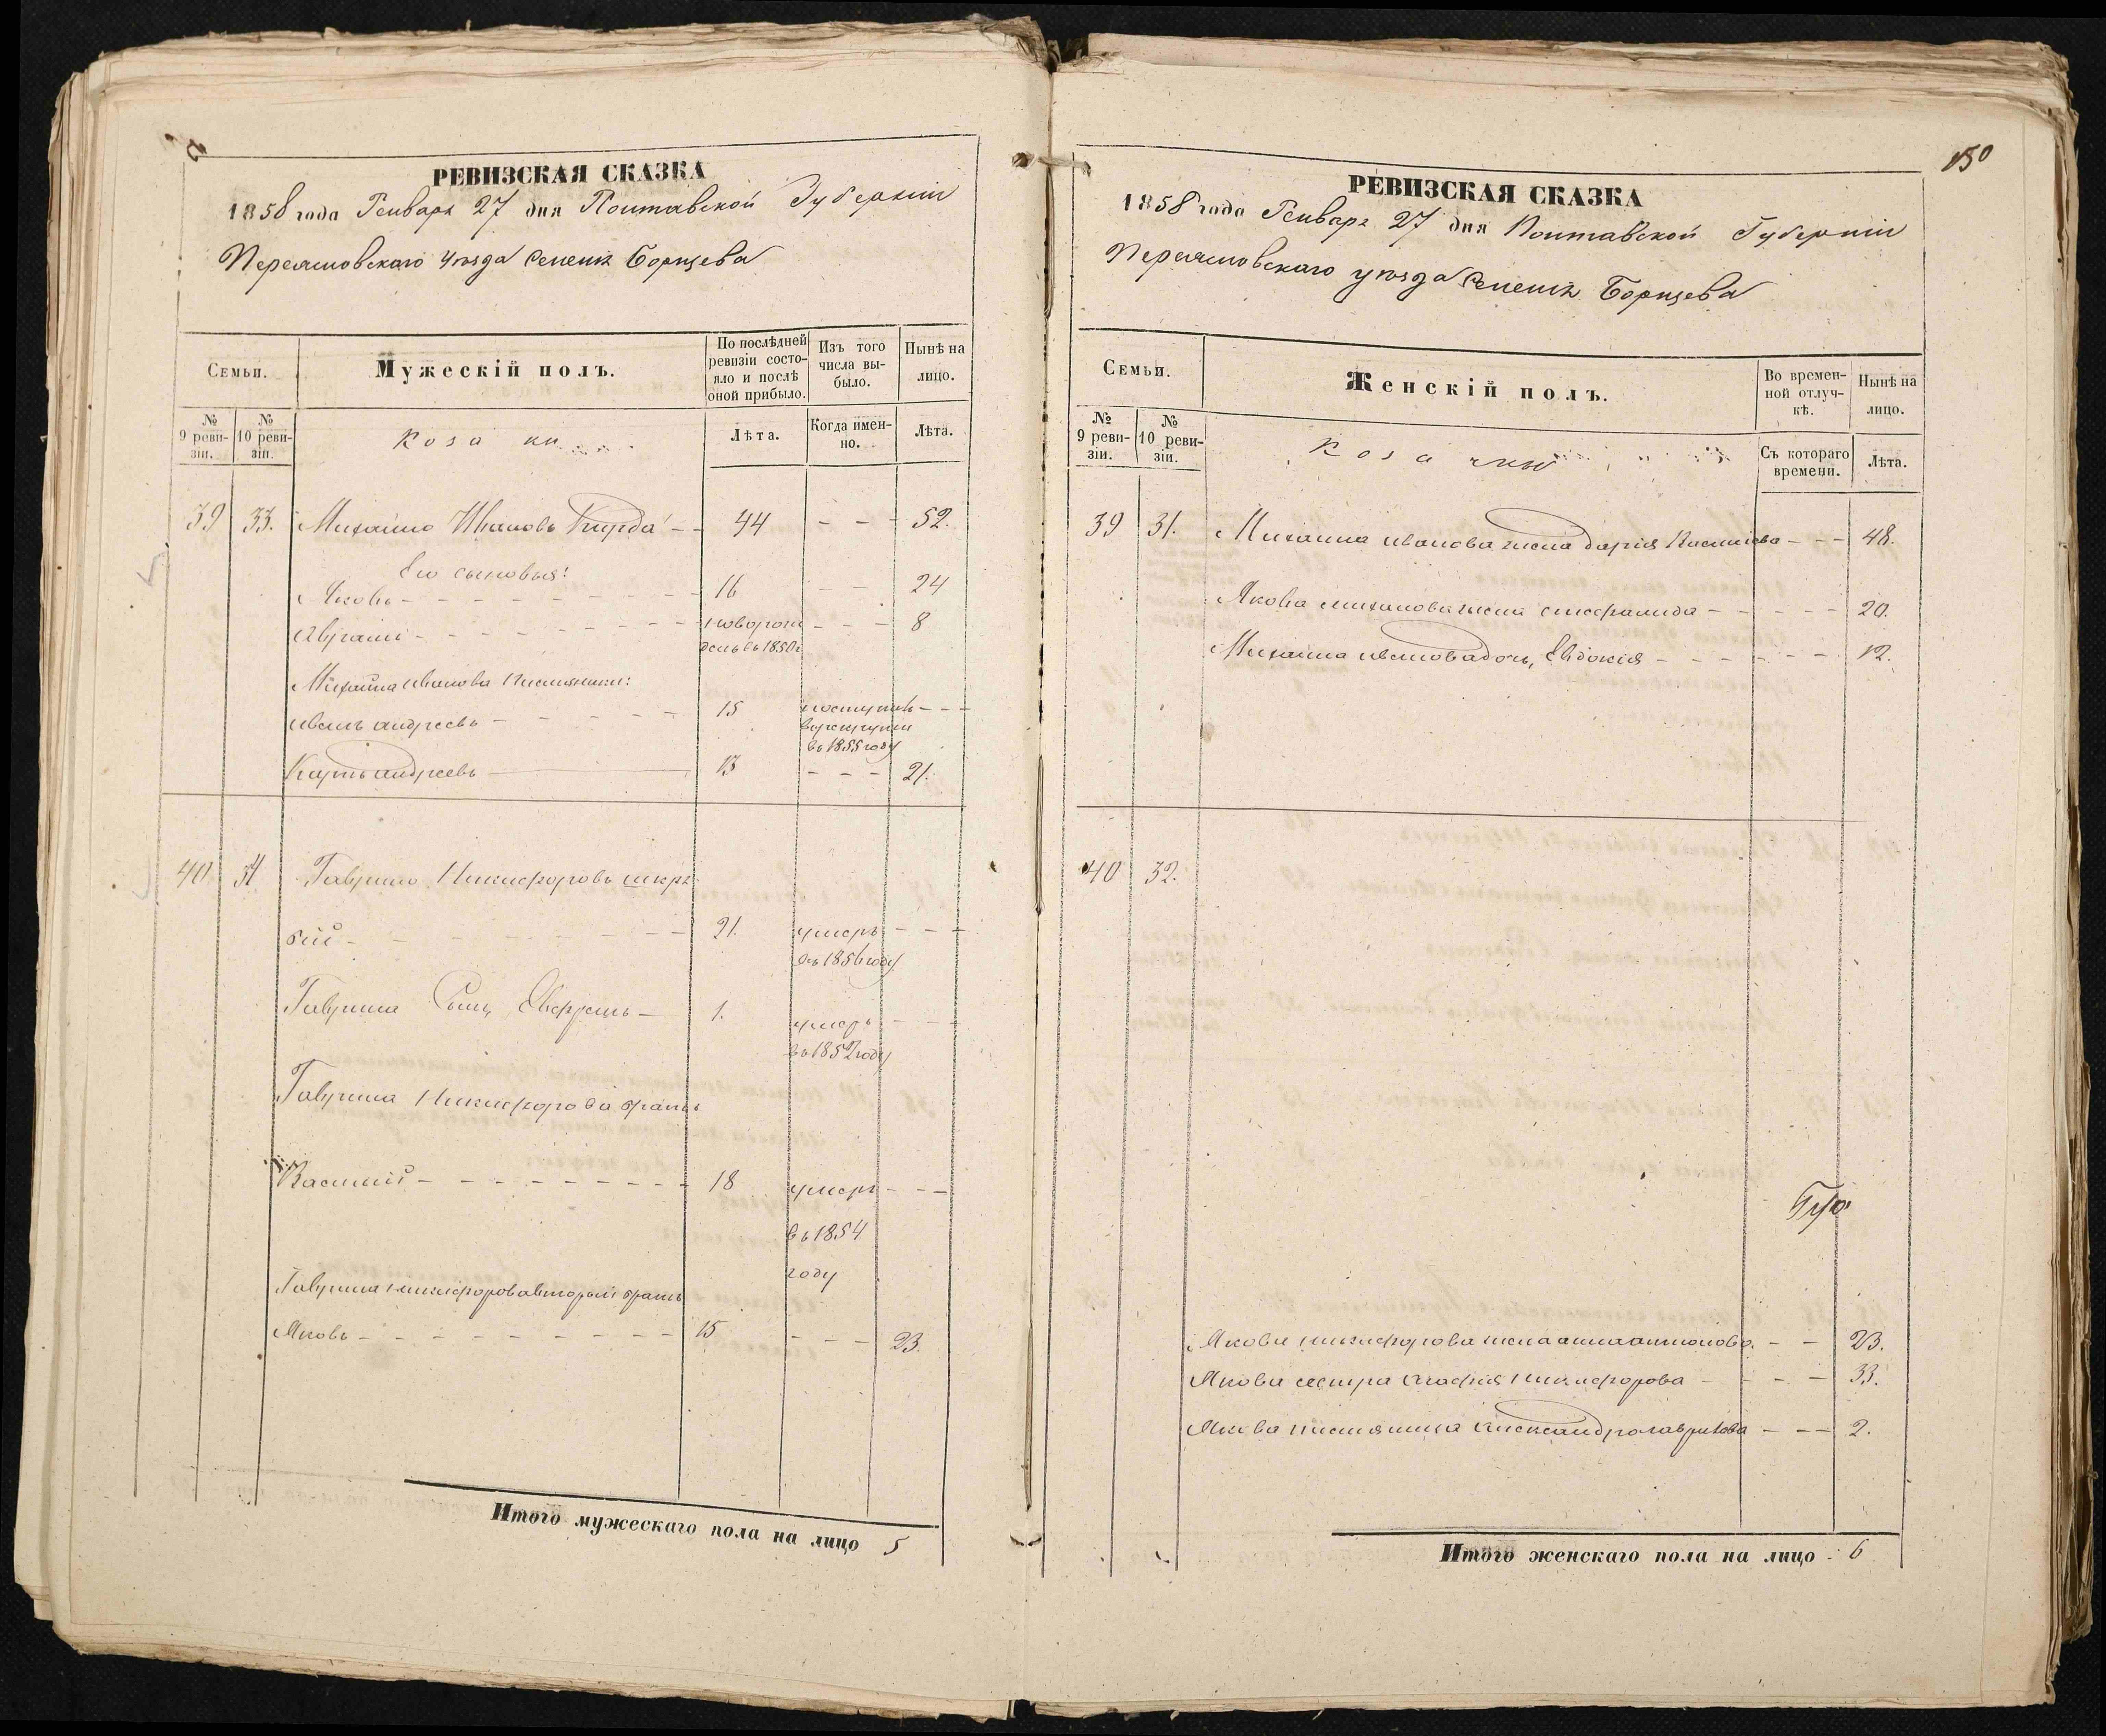 РЕВИЗСКАЯ СКАЗКА
1858 года Генваря 27 дня Полтавской Губерніи
Переяславскаго уѣзда селенія Борщева
Семьи.
Мужескій полъ.
По послѣдней ревизіи состояло и послѣ оной прибыло.
Изъ того числа выбыло.
Нынѣ на лицо.
№ 9 ревизіи.
№ 10 ревизіи.
Козаки
Лѣта.
Когда именно.
Лѣта.
39 33. Михайло Ивановъ Кирда - - 44 - - - 52.
Его сыновья:
Яковъ - - - 16 - - 24
Авраамъ - - - новорожденъ въ 1850 г - - - 8
Михайла Иванова племянники:
Иванъ Андреевъ - - - 15 поступилъ в рекруты въ 1855 году - - -
Карпъ Андреевъ - 13 - - - 21.
40 34 Гаврило Никифоровъ Шкря-
бій - - - 21. умеръ въ 1856 году - - -
Гаврила сынъ Евфремъ - 1. умеръ въ 1852 году - - -
Гаврила Никифорова братъ
Василий - - - 18 умеръ въ 1854 году - - -
Гаврила Никифорова вторый братъ
Яковъ - - - 15 - - - 23.
Итого мужескаго пола на лицо 5
150
РЕВИЗСКАЯ СКАЗКА
1858 года Генваря 27 дня Полтавской Губерніи
Переяславскаго уѣзда селенія Борщева
Семьи.
Женскій полъ.
Во временной отлучкѣ.
Нынѣ на лицо.
№ 9 ревизіи.
№ 10 ревизіи.
Козачки
Съ котораго времени.
Лѣта.
39 31. Михайла Иванова жена Дарія Василіева - - - 48.
Якова Михайлова жена - - - 20.
Михайла Иванова дочь, Евдокія - - - 12.
40 32.
Якова Никифорова жена Анна Антонова. - - 23.
Якова сестра Агафія Никифорова - - - 33.
Якова племяница Александра Гаврилова - - - 2.
Итого женскаго пола на лицо 6